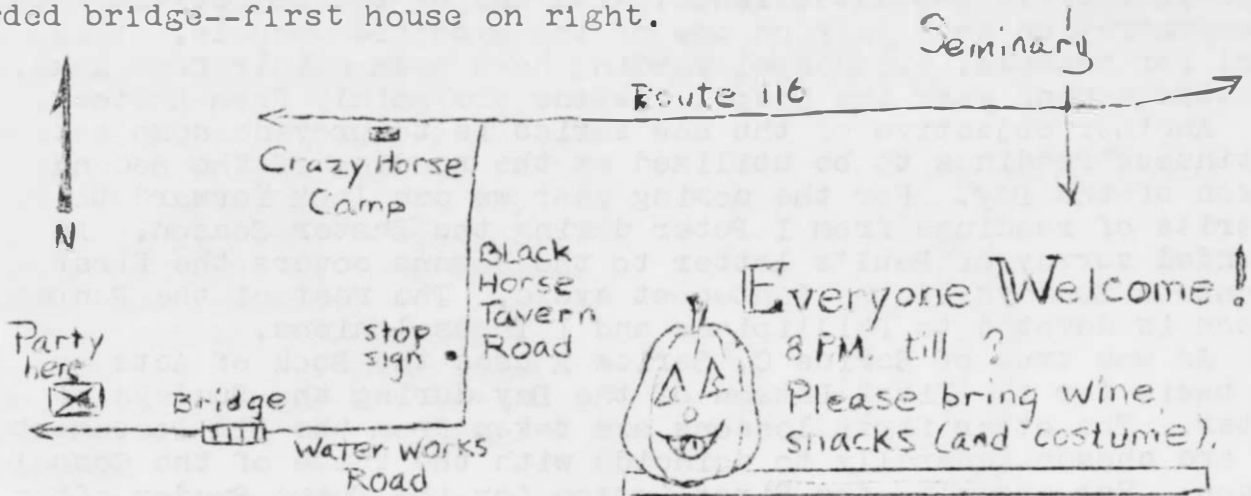 rded bridge--first house on right.
Seminary
Route 116
N
Crazy Horse
Camp
Black
Horse
Tavern
Road
stop
sign
Party
here
Bridge
Water Works
Road
Everyone Welcome!
8 PM till ?
Please bring wine,
snacks (and costume).